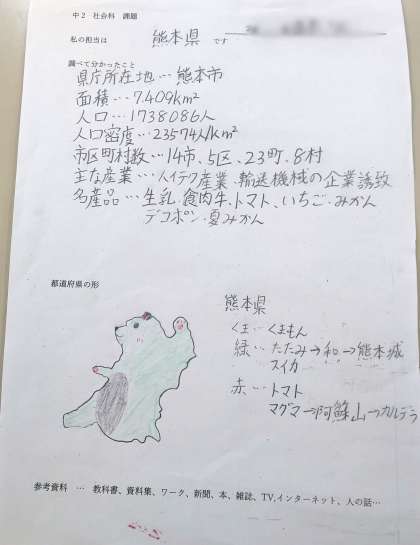 中2 社会科 課題
私の担当は 熊本県 です
調べて分かったこと
県庁所在地… 熊本市
面積…7.409km²
人口…1738086人
人口密度…23574人/km²
市区町村数…14市、5区、23町、8村
主な産業…ハイテク産業、輸送機械の企業誘致
名産品…生乳、食肉牛、トマト、いちご、みかん
デコポン、夏みかん
都道府県の形
熊本県
くま…くまもん
緑…たたみ→和→熊本城
スイカ
赤…トマト
マグマ→阿蘇山→カルデラ
参考資料 … 教科書、資料集、ワーク、新聞、本、雑誌、TV,インターネット、人の話…